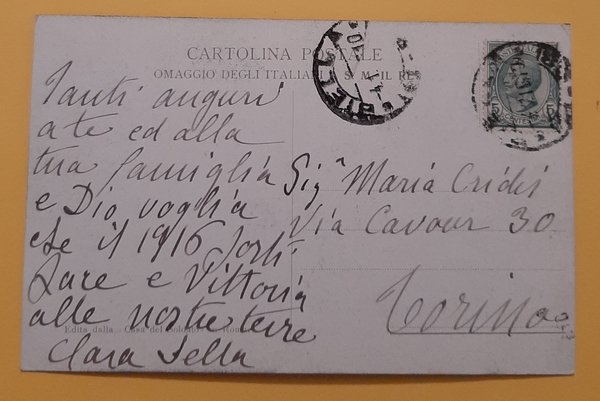 CARTOLINA POSTALE
OMAGGIO DEGLI ITALIANI A S. M. IL RE
BIELLA
5
Tanti auguri
a te ed alla
tua famiglia
e Dio voglia
che il 1916 porti
Pace e Vittoria
alle nostre terre
Clara Sella
Sigª Maria
Via Cavour 30
Torino
Edita dalla Casa del Soldato Roma